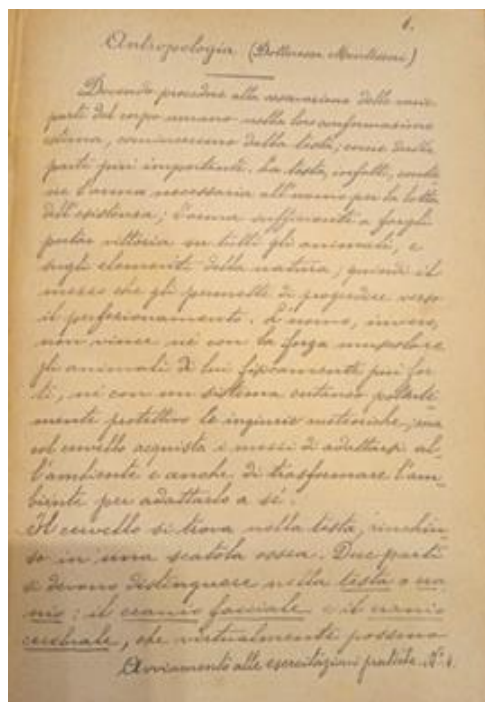 1.
Antropologia (Dottoressa Montessori)
Dovendo procedere alla osservazione delle varie
parti del corpo umano nella loro conformazione
esterna, cominceremo dalla testa, come dalla
parte più importante. La testa, infatti, contie
ne l'arma necessaria all'uomo per la lotta
dell'esistenza; l'arma sufficiente a fargli
portar vittoria su tutti gli animali, e
sugli elementi della natura; quindi il
mezzo che gli permette di progredire verso
il perfezionamento. L'uomo, invero,
non vince nè con la forza muscolare
gli animali di lui fisicamente più for
ti, nè con un sistema cutaneo potente
mente protettivo le ingiurie meteoriche; ma
col cervello acquista i mezzi di adattarsi al-
l'ambiente e anche di trasformare l'am-
biente per adattarlo a sè.
Il cervello si trova nella testa, rinchiu-
so in una scatola ossea. Due parti
si devono distinguere nella testa o cra
nio: il cranio facciale e il cranio
cerebrale, che virtualmente possono
Avviamento alle esercitazioni pratiche. N° 1.